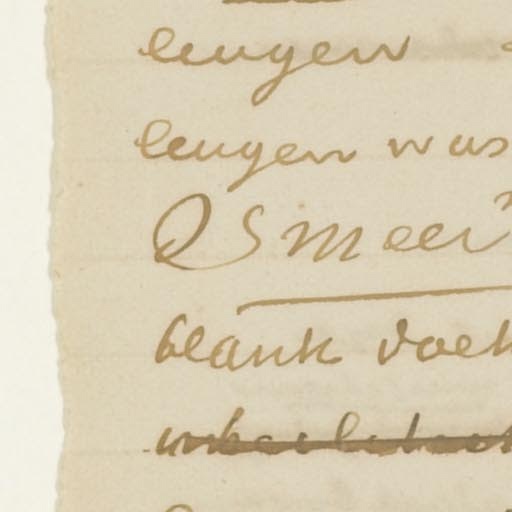 leugen
leugen was
QS meer
blank voel